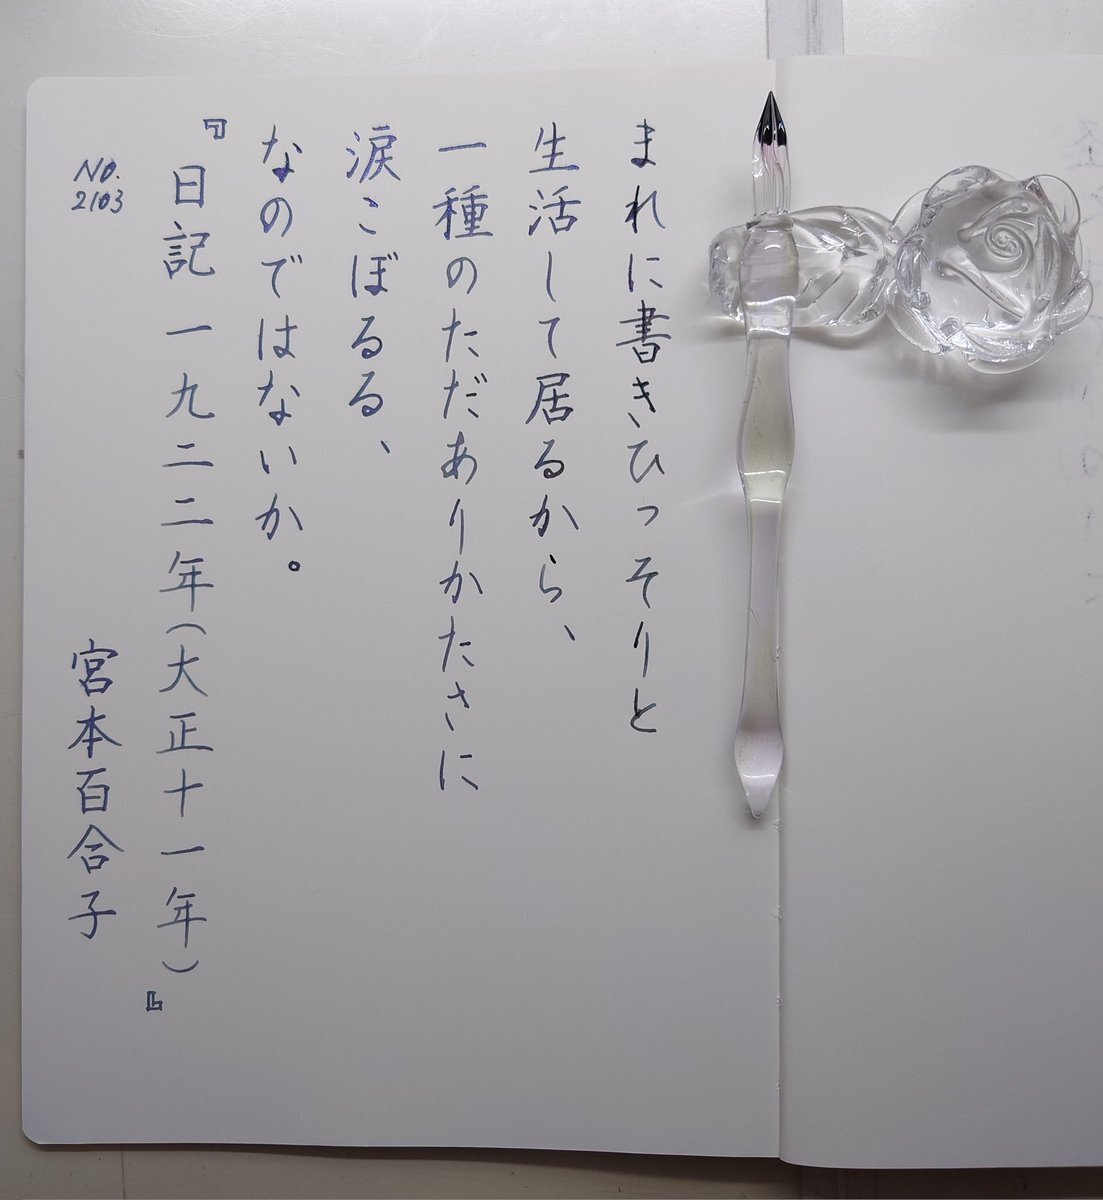 まれに書きひっそりと
生活して居るから、
一種のただありかたさに
涙こぼるる、
なのではないか。
『日記 一九二二年(大正十一年)』
宮本百合子
NO.
2103